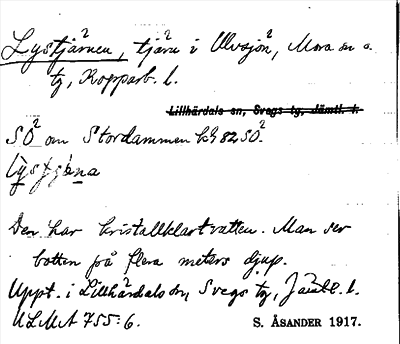 Lystjärnen, tjärn i Ulvsjön, Mora sn o.
tg, Kopparb. l.
Lillhärdals sn, Svegs tg, Jämtl. l.
SO om Stordammen kh 82 SO.
Den har kristallklart vatten. Man ser
botten på flera meters djup.
Uppt. i Lillhärdals sn, Svegs tg, Jämtl. l.
ULMA 755:6.
S. ÅSANDER 1917.